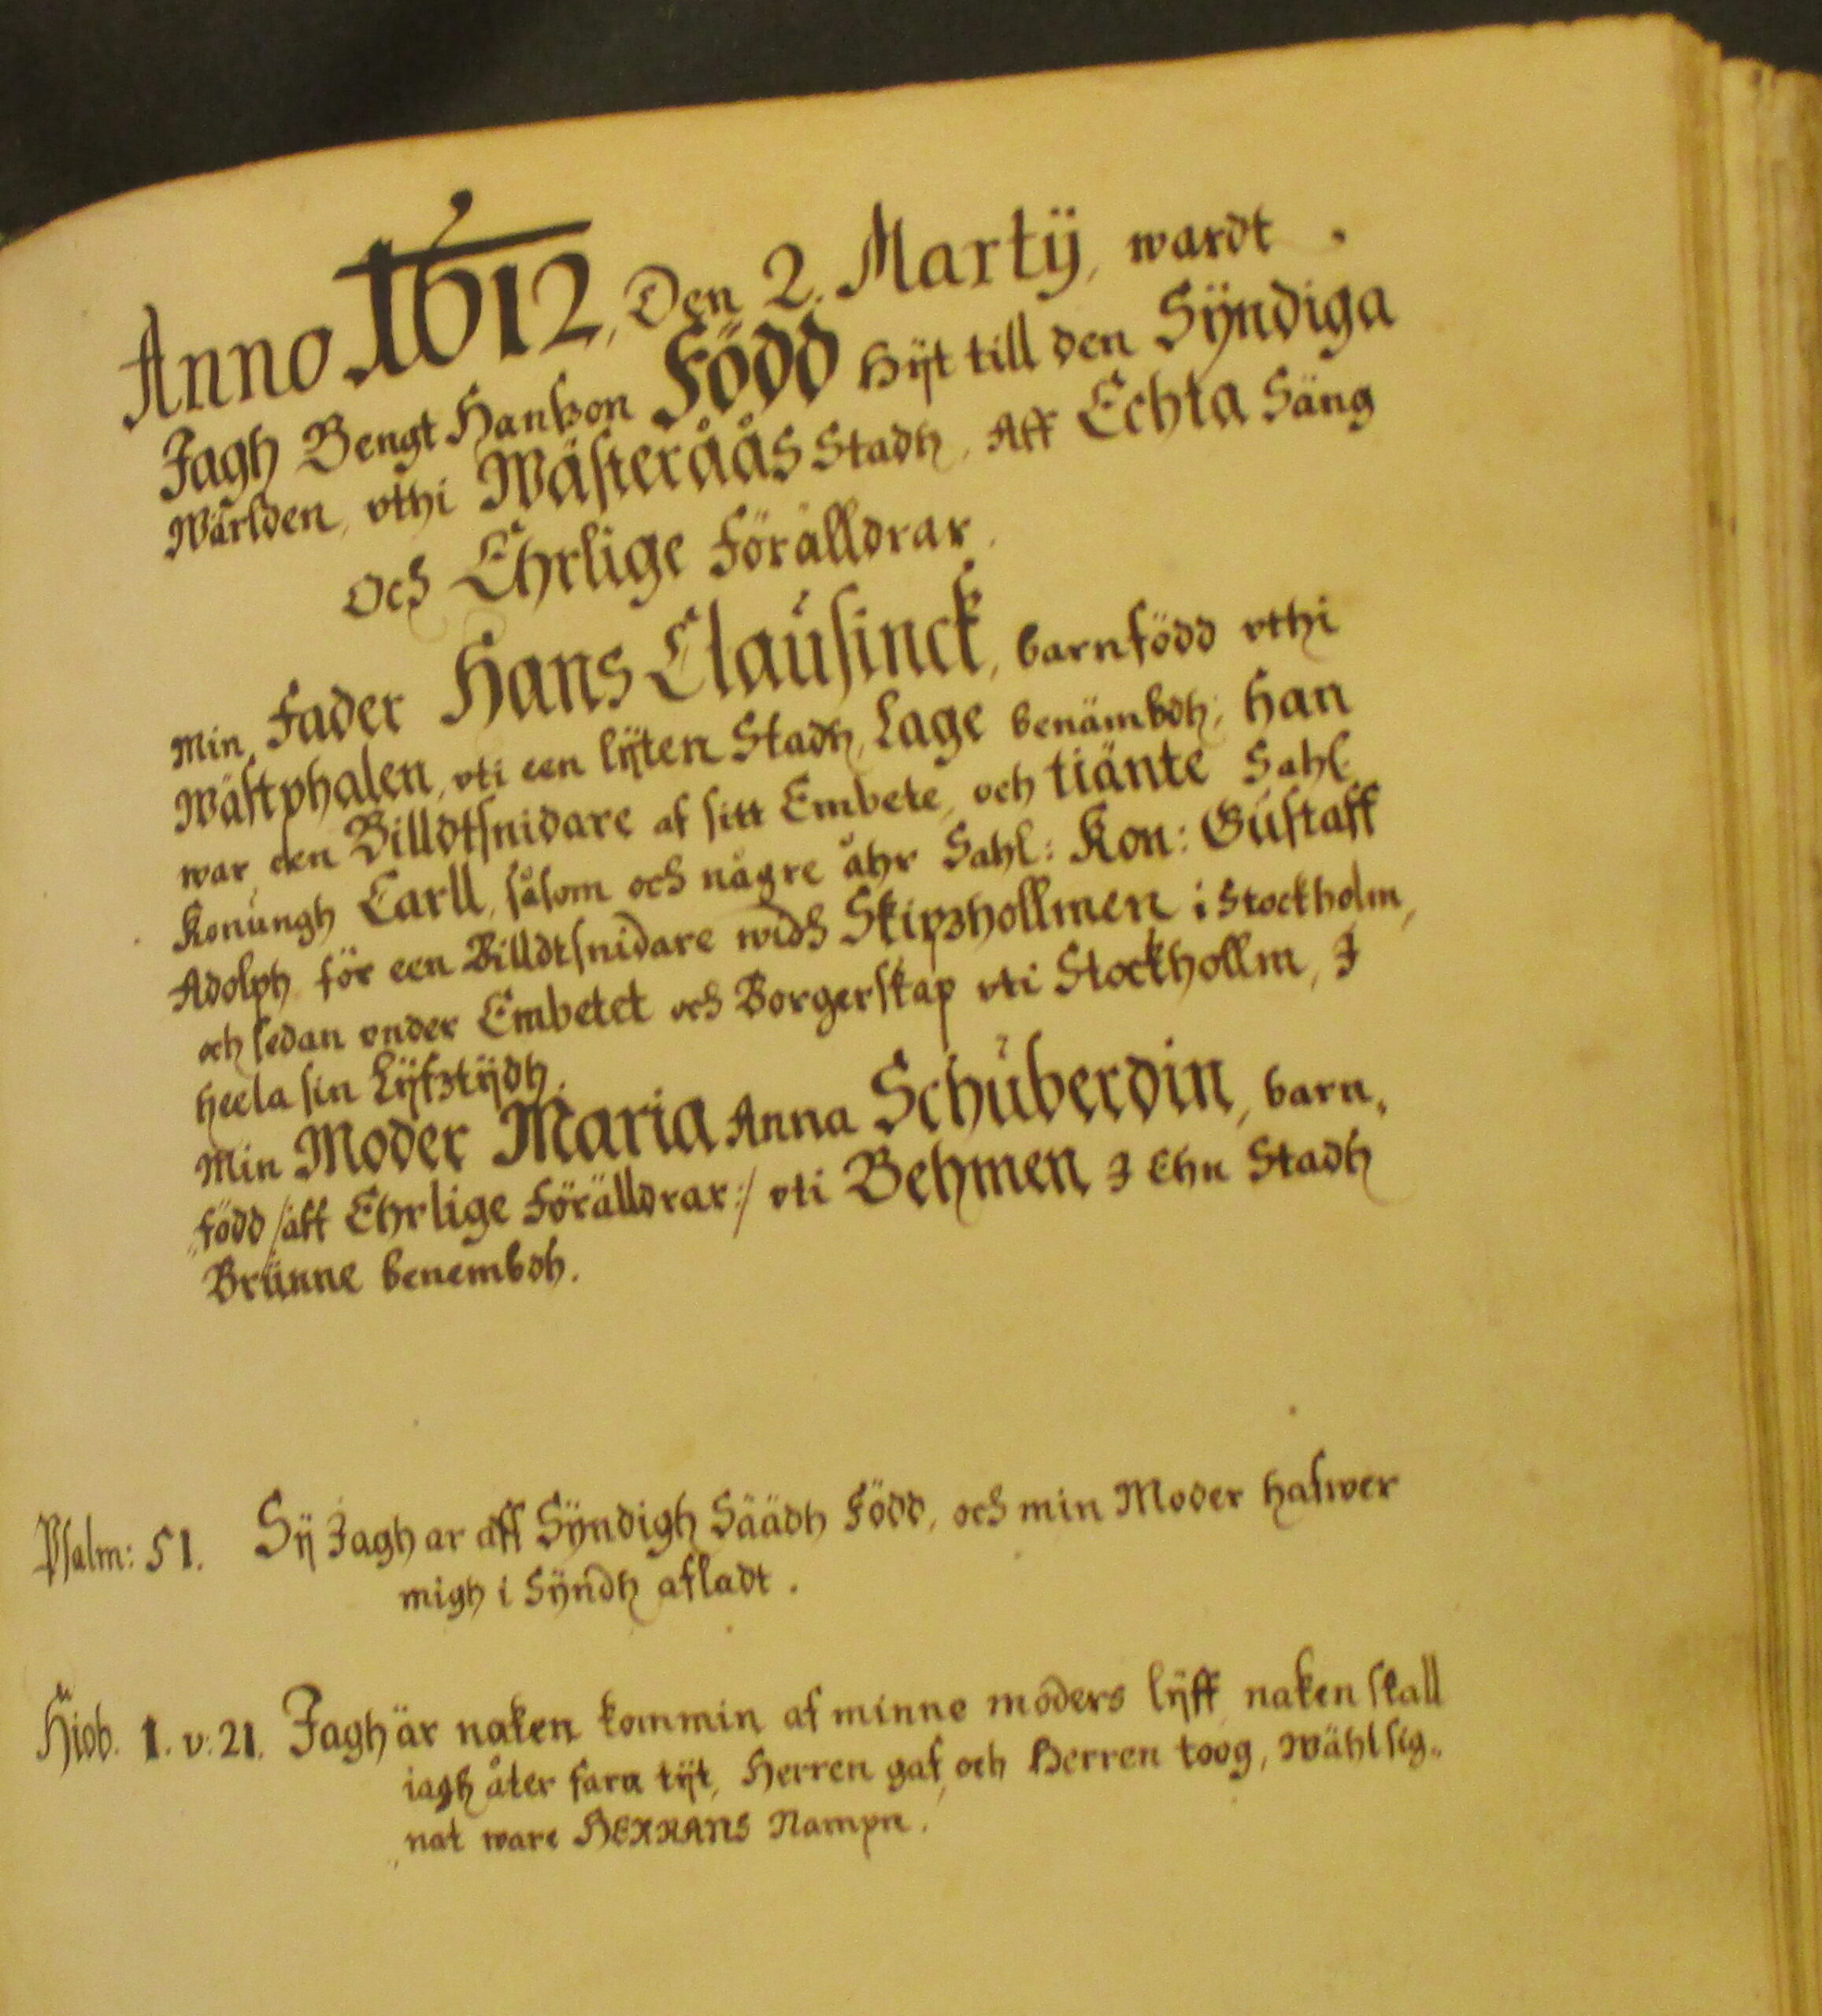 Anno 1612, Den 2. Martÿ, wardt
Jagh Bengt Hanßon Född Hÿt till den Sÿndiga
Wärlden, vthi Wästeråås Stadh, Aff Echta Säng
och Ehrlige Förälldrar.
Min Fader Hans Clausinck, barnfödd vthi
Wästphalen, vti een lÿten Stadh, Lage benämbdh; Han
war een Billdtsnidare af sitt Embete, och tiänte Sahl.
Konungh Carll, såsom och någre åhr Sahl: Kon: Gustaff
Adolph för een Billdtsnidare widh Skipzhollmen i Stockholm,
och sedan vnder Embetet och Borgerskap vti Stockhollm, I
heela sin Lÿfztÿdh.
Min Moder Maria Anna Schuberdin, barn„
„född /äff Ehrlige Förälldrar:/ vti Behmen I Ehn Stadh
Brünne benembdh.
Psalm: 51. Sÿ Jagh ar aff Sÿndigh Säädh Född, och min Moder hafwer
migh i Sÿndh afladt.
Hiob. 1. v: 21. Jagh är naken kommin af minne moders lÿff, naken skall
iagh åter fara tÿt, Herren gaf, och Herren toog, Wählsig„
„nat ware HERRANS Nampn.